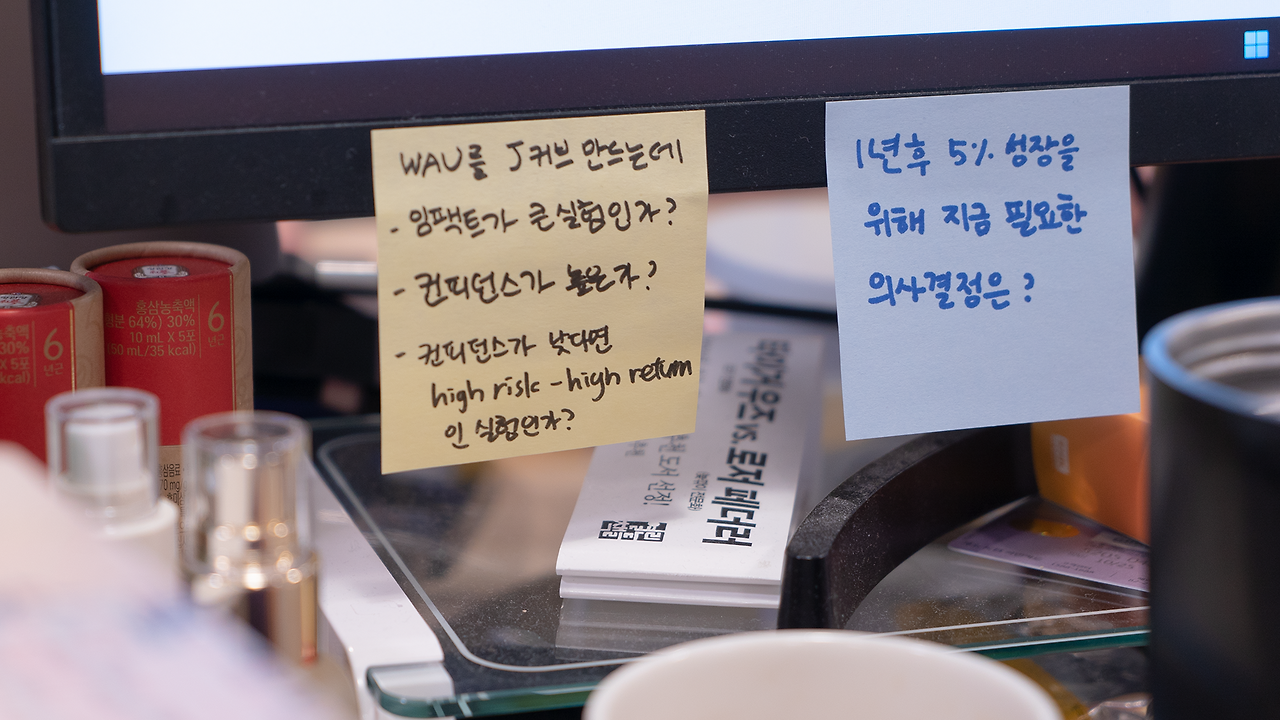 WAU를 J커브 만드는데
- 임팩트가 큰 실험인가?
- 컨피던스가 높은가?
- 컨피던스가 낮다면
high risk - high return
인 실험인가?
1년후 5% 성장을
위해 지금 필요한
의사결정은?
홍삼농축액
64%) 30%
10 mL X 5포
50 mL/35 kcal)
6
년근
30%
X 5포
kcal)
6
년근
타이거 우즈 vs. 로저 페더러
도서 선정!